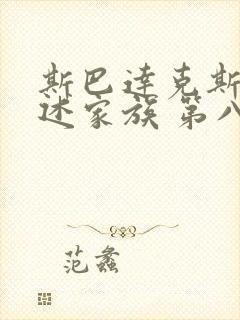 斯巴达克斯
述家族 第八
范蠡